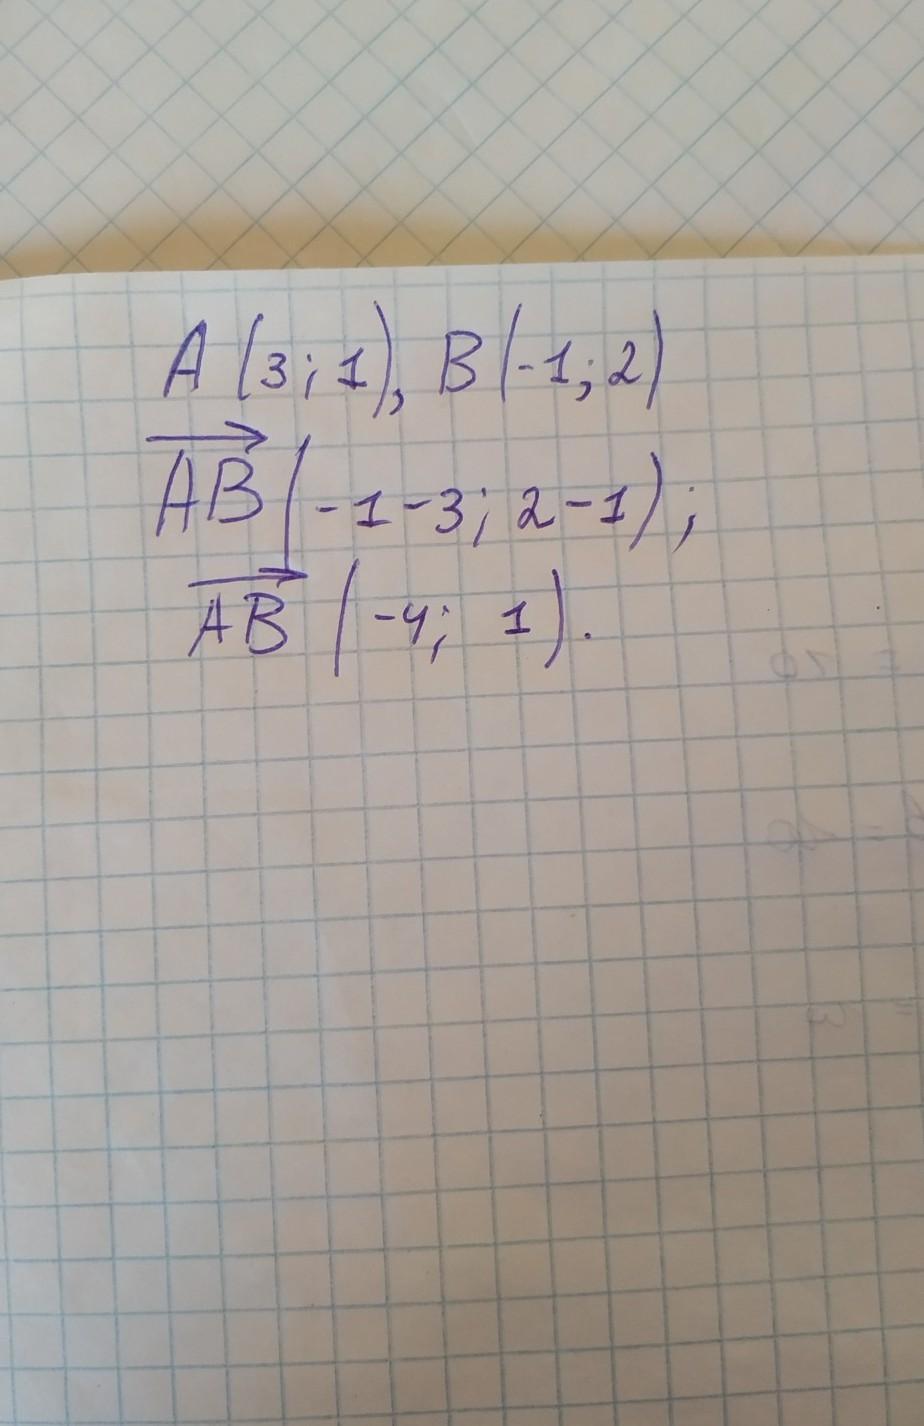 A (3; 1), B (-1; 2)
AB (-1-3; 2-1);
AB (-4; 1).